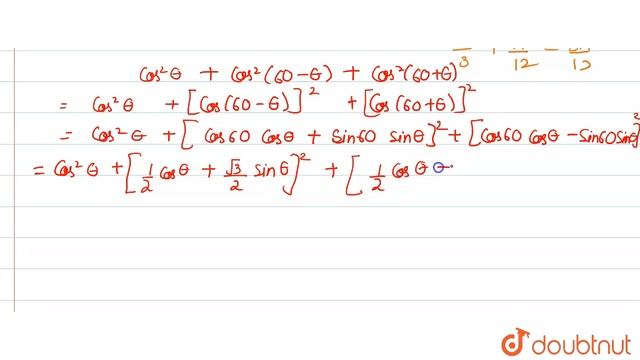 3 12 12
cos²θ + cos²(60-θ) + cos²(60+θ)
= cos²θ + [cos(60-θ)]² + [cos(60+θ)]²
= cos²θ + [cos60 cosθ + sin60 sinθ]² + [cos60 cosθ - sin60 sinθ]²
= cos²θ + [1/2 cosθ + √3/2 sinθ]² + [1/2 cosθ θ
doubtnut